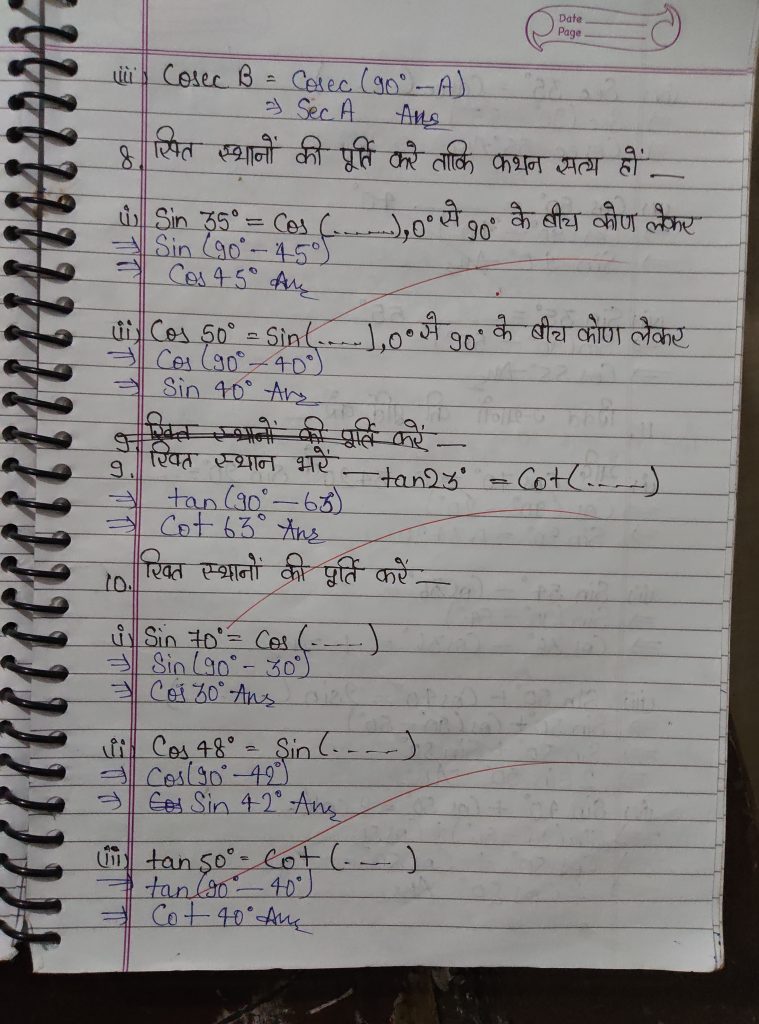 Date
Page
iii) Cosec B = Cosec (90° - A)
⇒ Sec A Ans
8. रिक्त स्थानों की पूर्ति करे ताकि कथन सत्य हों —
(i) Sin 35° = Cos (.......), 0° से 90° के बीच कोण लेकर
⇒ Sin (90° - 45°)
⇒ Cos 45° Ans
(ii) Cos 50° = Sin (.......), 0° से 90° के बीच कोण लेकर
⇒ Cos (90° - 40°)
⇒ Sin 40° Ans
9. रिक्त स्थानों की पूर्ति करें —
9. रिक्त स्थान भरें — tan 23° = Cot (.......)
⇒ tan (90° - 63)
⇒ Cot 63° Ans
10. रिक्त स्थानों की पूर्ति करें —
(i) Sin 70° = Cos (.......)
⇒ Sin (90° - 30°)
⇒ Cos 30° Ans
(ii) Cos 48° = Sin (.......)
⇒ Cos (90° - 42°)
⇒ Cos Sin 42° Ans
(iii) tan 50° = Cot (.......)
⇒ tan (90° - 40°)
⇒ Cot 40° Ans